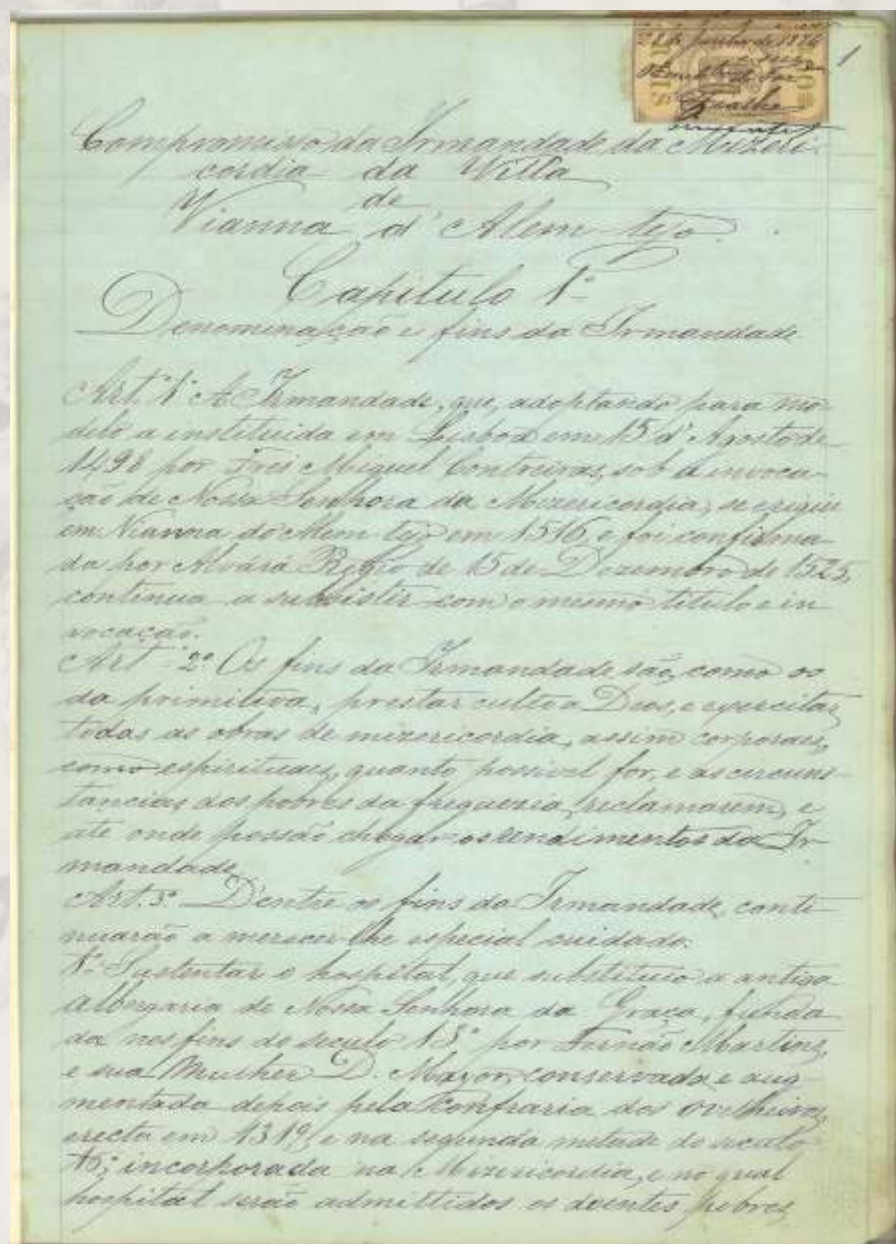 1
28 de Junho de 1876
Compromisso da Irmandade da Mizeri-
cordia da Villa
de
Vianna d'Alem-tejo.
Capitulo 1º
Denominação e fins da Irmandade
Artº 1º A Irmandade, que, adoptando para mo-
delo a instituida em Lisboa em 15 d'Agosto de
1498 por Frei Miguel Contreiras, sob a invoca-
ção de Nossa Senhora da Mizericordia, se erigiu
em Vianna do Alem-tejo em 1516, e foi confirma-
da por Alvará Regio de 15 de Dezembro de 1525,
continua a subsistir com o mesmo titulo e in-
vocação.
Artº 2º Os fins da Irmandade são, como os
da primitiva, prestar culto a Deos, e exercitar
todas as obras de mizericordia, assim corporaes,
como espirituaes, quanto possivel for, e as circuns-
tancias dos pobres da freguezia, reclamarem, e
até onde possão chegar os rendimentos da Ir-
mandade.
Art. 3º D'entre os fins da Irmandade, conti-
nuarão a merecer-lhe especial cuidado:
1º Sustentar o hospital, que substituio a antiga
albergaria de Nossa Senhora da Graça, funda-
da nos fins do seculo 13º por Fernão Martins,
e sua Mulher D. Mayor, conservada e aug-
mentada depois pela Confraria dos Ovelheiros,
erecta em 1319, e na segunda metade do seculo
incorporada na Mizericordia, e no qual
hospital serão admittidos os doentes pobres,